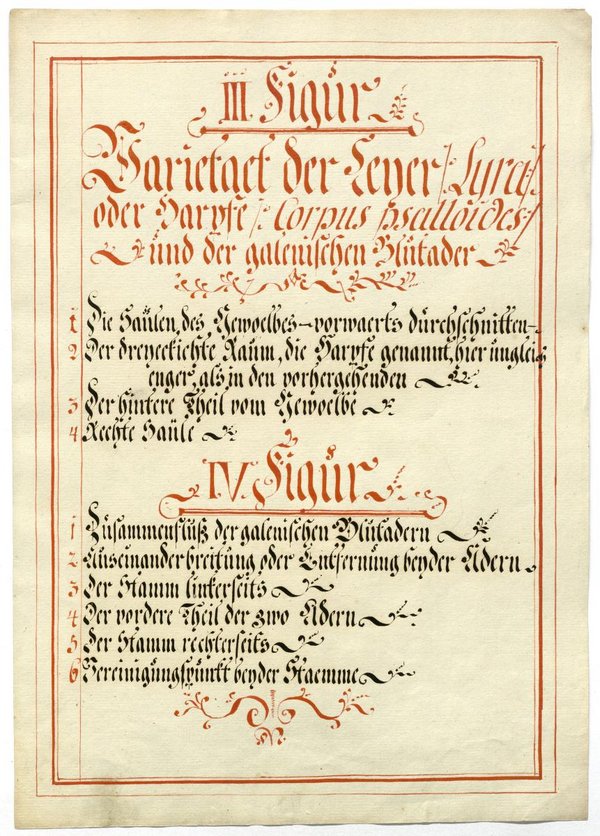 III. Figur
Varietaet der Leyer /: Lyra :/
oder Harpfe /: Corpus psalloides :/
und der galenischen Blutader
1 Die Säulen, des Gewoelbes – vorwaerts durchschnitten –
2 Der dreyeckichte Raum, die Harpfe genannt, hier ungleich
enger, als in den vorhergehenden
3 Der hintere Theil vom Gewoelbe
4 Rechte Säule
IV. Figur
1 Zusammenfluß der galenischen Blutadern
2 Auseinanderbreitung oder Entfernung beyder Adern
3 Der Stamm linkerseits
4 Der vordere Theil der zwo Adern
5 Der Stamm rechterseits
6 Vereinigungspunkt beyder Staemme